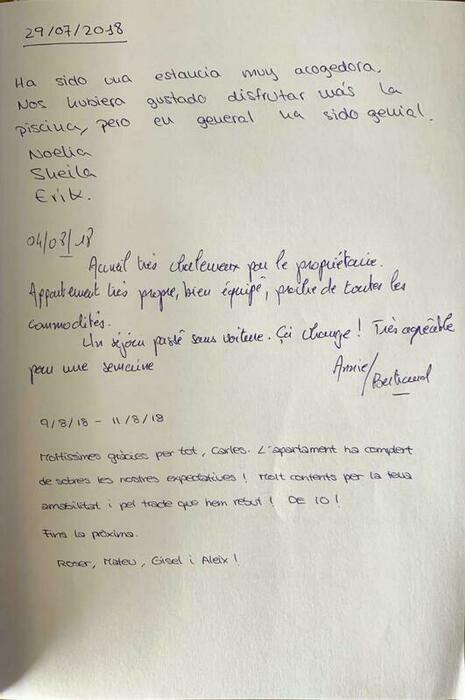 29/07/2018
Ha sido una estancia muy acogedora.
Nos hubiera gustado disfrutar más la
piscina, pero en general ha sido genial.
Noelia
Sheila
Erik.
04/08/18
Accueil très chaleureux par le propriétaire.
Appartement très propre, bien équipé, proche de toutes les
commodités.
Un séjour passé sans voiture. Ça change ! Très agréable
pour une semaine
Annie/
Bertrand
9/8/18 - 11/8/18
Moltíssimes gràcies per tot, Carles. L'apartament ha complert
de sobres les nostres expectatives ! Molt contents per la teua
amabilitat i pel tracte que hem rebut ! DE 10 !
Fins la pròxima.
Roser, Mateu, Gisel i Aleix !